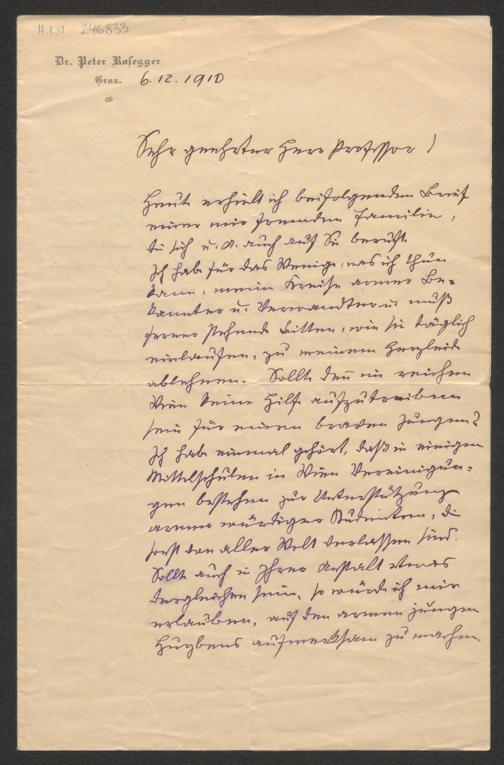 H.I.N. 246833
Dr. Peter Rosegger
Graz. 6.12.1910
Sehr geehrter Herr Professor!
Heute erhielt ich beifolgenden Brief
einer mir fremden Familie,
die sich u. A. auch auf Sie beruft.
Ich hab für das Wenige, was ich thun
kann, meine Kreise armer Be-
kannter u. Verwandter u. muß
ferner stehende Bitten, wie sie täglich
einlaufen, zu meinem Herzleid
ablehnen. Sollte den im reichen
Wien keine Hilfe aufzutreiben
sein für einen braven Jungen?
Ich hab einmal gehört, daß in einigen
Mittelschulen in Wien Vereinigun-
gen bestehen zur Unterstützung
armer würdiger Studenten, die
sonst von aller Welt verlassen sind.
Sollte auch in Ihrer Anstalt etwas
dergleichen sein, so würde ich mir
erlauben, auf den armen Jungen
aufmerksam zu machen.